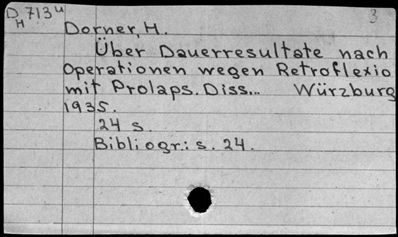 D 713u 3
H
Dorner, H.
Über Dauerresultate nach
Operationen wegen Retroflexio
mit Prolaps. Diss... Würzburg
1935.
24 s.
Bibliogr.: s. 24.